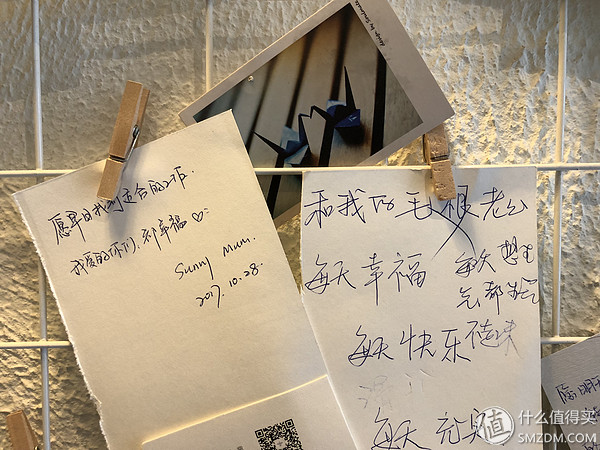 愿早日找到适合的工作.
我爱的你们,都幸福♡.
Sunny Mum.
2017.10.28.
design by
和我的毛根老公
每天幸福
每天想
每天快乐
每天充实
值 什么值得买
SMZDM.COM